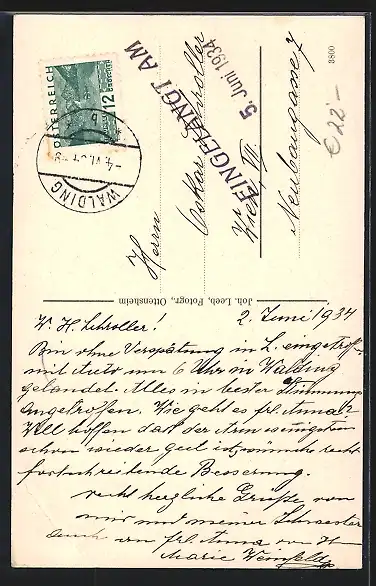 ÖSTERREICH
12
GROSCHEN
WALDING
-4.VI.34
EINGELANGT AM
5. Juni 1934
3800
€ 22,-
Herrn
Oskar Schroller
Wien VII.
Neubaugasse 7
Joh. Leeb, Fotogr., Ottensheim
2. Juni 1934
W. H. Schroller!
Bin ohne Verspätung in L. eingetroff.
mit Auto um 6 Uhr in Walding
gelandet. Alles in bester Stimmung
angetroffen. Wie geht es frl. Anna?
Will hoffen daß der Arm wenigstens
schon wieder geil ist, wünsche recht
fortschreitende Besserung.
recht herzliche Grüße von
mir und meiner Schwester
auch an frl. Anna
Marie Weinfeld